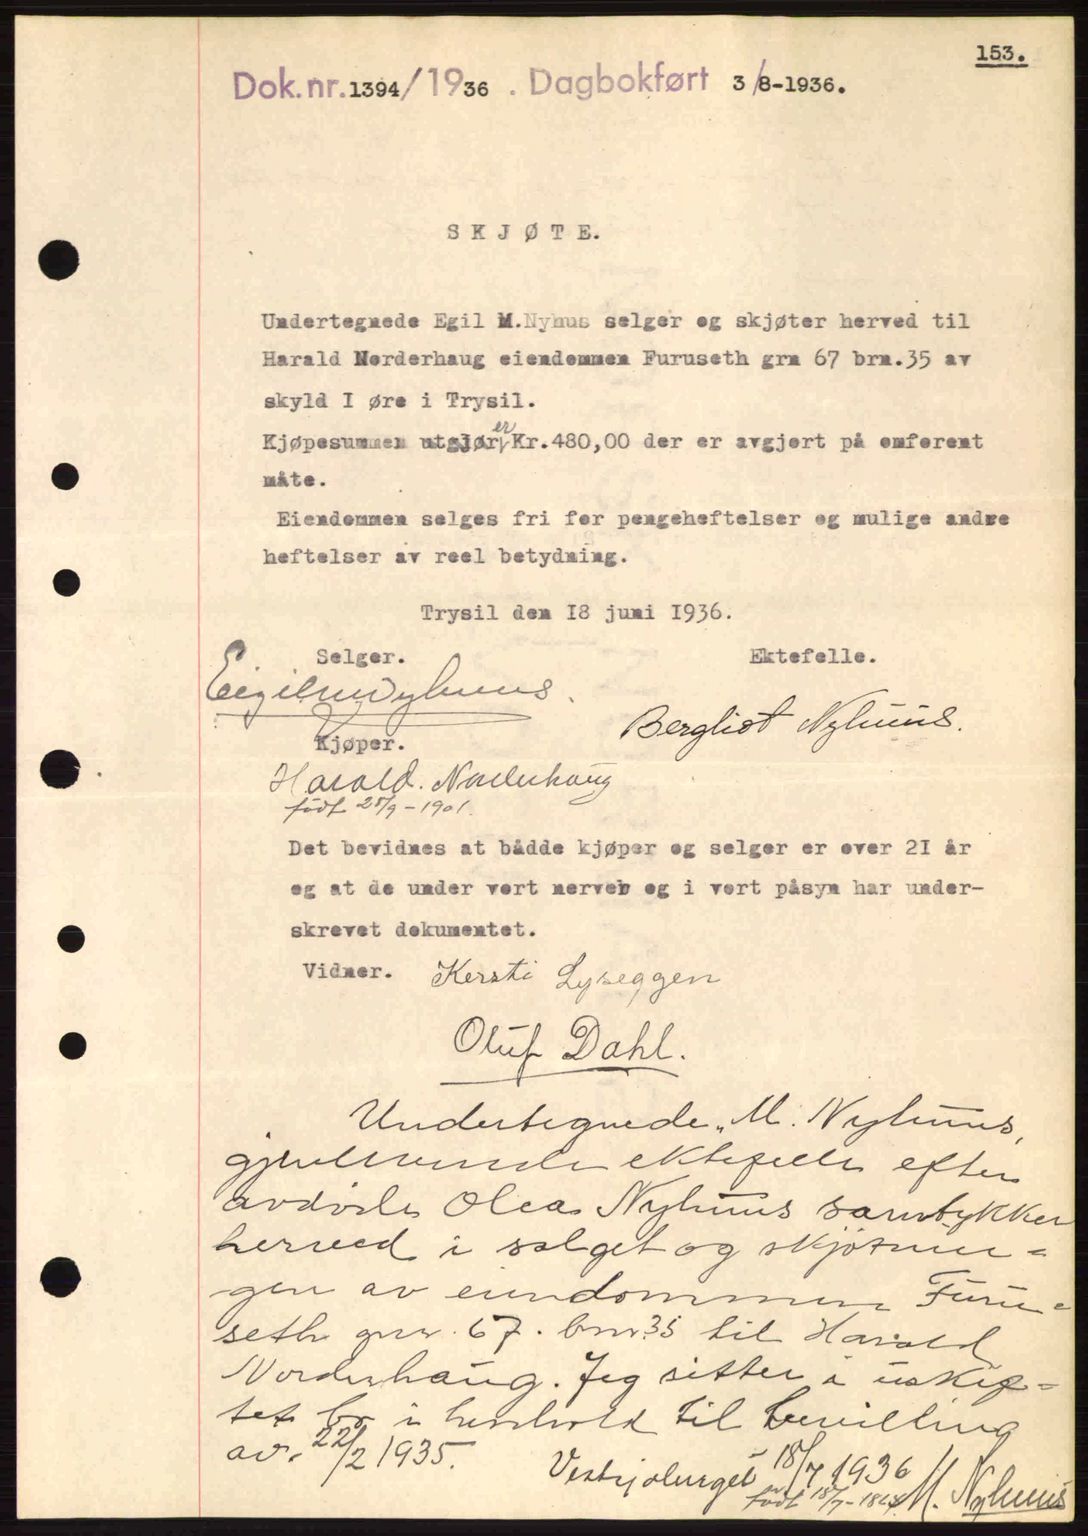 153.
Dok.nr.1394/1936 . Dagbokført 3/8-1936.
SKJØTE.
Undertegnede Egil M.Nyhus selger og skjøter herved til
Harald Norderhaug eiendommen Furuseth grn 67 brn.35 av
skyld I øre i Trysil.
Kjøpesummen utgjør er Kr.480,00 der er avgjort på omforent
måte.
Eiendommen selges fri for pengeheftelser og mulige andre
heftelser av reel betydning.
Trysil den I8 juni I936.
Selger. Ektefelle.
Bergliot Nyhuus.
Kjøper.
Harald. Norderhaug
født 25/9-1901.
Det bevidnes at bådde kjøper og selger er over 2I år
og at de under vort nerver og i vort påsyn har under-
skrevet dokumentet.
Vidner. Kersti Lyseggen
Oluf Dahl.
Undertegnede, M. Nyhuus,
gjenlevende ektefelle efter
avdøde Olea Nyhuus samtykker
herved i salget og skjøtnin=
gen av eiendommen Furu=
seth gnr. 67. bnr 35 til Harald
Norderhaug. Jeg sitter i uskif=
tet bo i henhold til bevilling
av. 22/2 1935.
18/7 1936
født M. Nyhuus